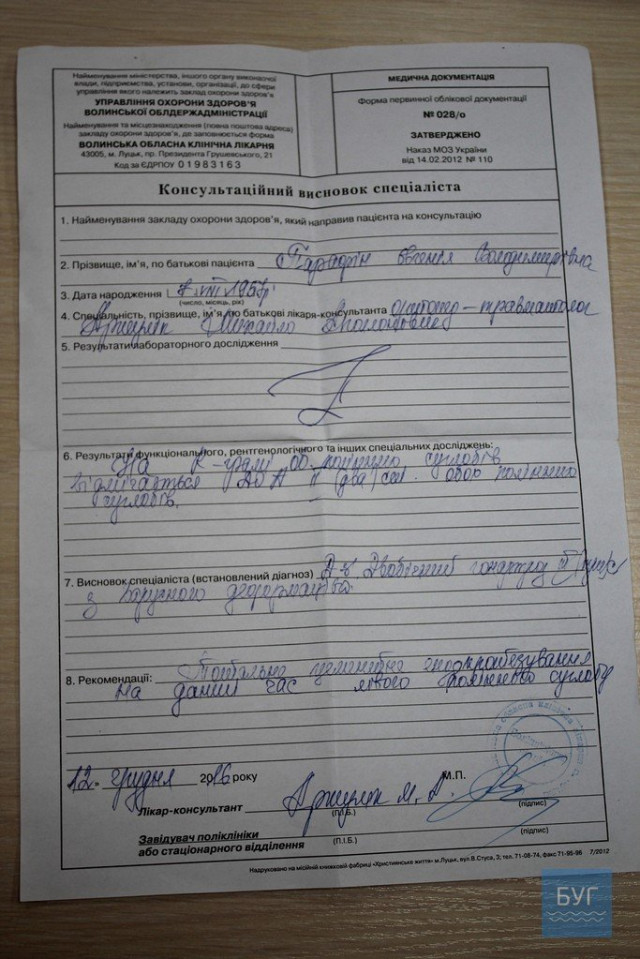 Найменування міністерства, іншого органу виконавчої
влади, підприємства, установи, організації, до сфери
управління якого належить заклад охорони здоров'я
УПРАВЛІННЯ ОХОРОНИ ЗДОРОВ'Я
ВОЛИНСЬКОЇ ОБЛДЕРЖАДМІНІСТРАЦІЇ
Найменування та місцезнаходження (повна поштова адреса)
закладу охорони здоров'я, де заповнюється форма
ВОЛИНСЬКА ОБЛАСНА КЛІНІЧНА ЛІКАРНЯ
43005, м. Луцьк, пр. Президента Грушевського, 21
Код за ЄДРПОУ 01983163
МЕДИЧНА ДОКУМЕНТАЦІЯ
Форма первинної облікової документації
№ 028/о
ЗАТВЕРДЖЕНО
Наказ МОЗ України
від 14.02.2012 № 110
Консультаційний висновок спеціаліста
1. Найменування закладу охорони здоров'я, який направив пацієнта на консультацію
2. Прізвище, ім'я, по батькові пацієнта Євгенія Володимирівна
3. Дата народження VIII 1957р
(число, місяць, рік)
4. Спеціальність, прізвище, ім'я, по батькові лікаря-консультанта ортопед-травматолог
Михайло
5. Результати лабораторного дослідження
6. Результати функціонального, рентгенологічного та інших спеціальних досліджень:
На R-грамі об. колінних суглобів
до (два) обох колінних
суглобів.
7. Висновок спеціаліста (встановлений діагноз) Д-з. Двобічний гонартроз III
з варусною деформацією
8. Рекомендації: Тотальне ендопротезування
на даний час лівого колінного суглобу
12 грудня 2016 року
М.П.
Лікар-консультант М. А.
(П.І.Б.)
(підпис)
Завідувач поліклініки
або стаціонарного відділення
(П.І.Б.)
(підпис)
Надруковано на місійній книжковій фабриці «Християнське життя» м.Луцьк, вул.В.Стуса, 3; тел. 71-08-74, факс 71-95-96 7/2012
БУГ